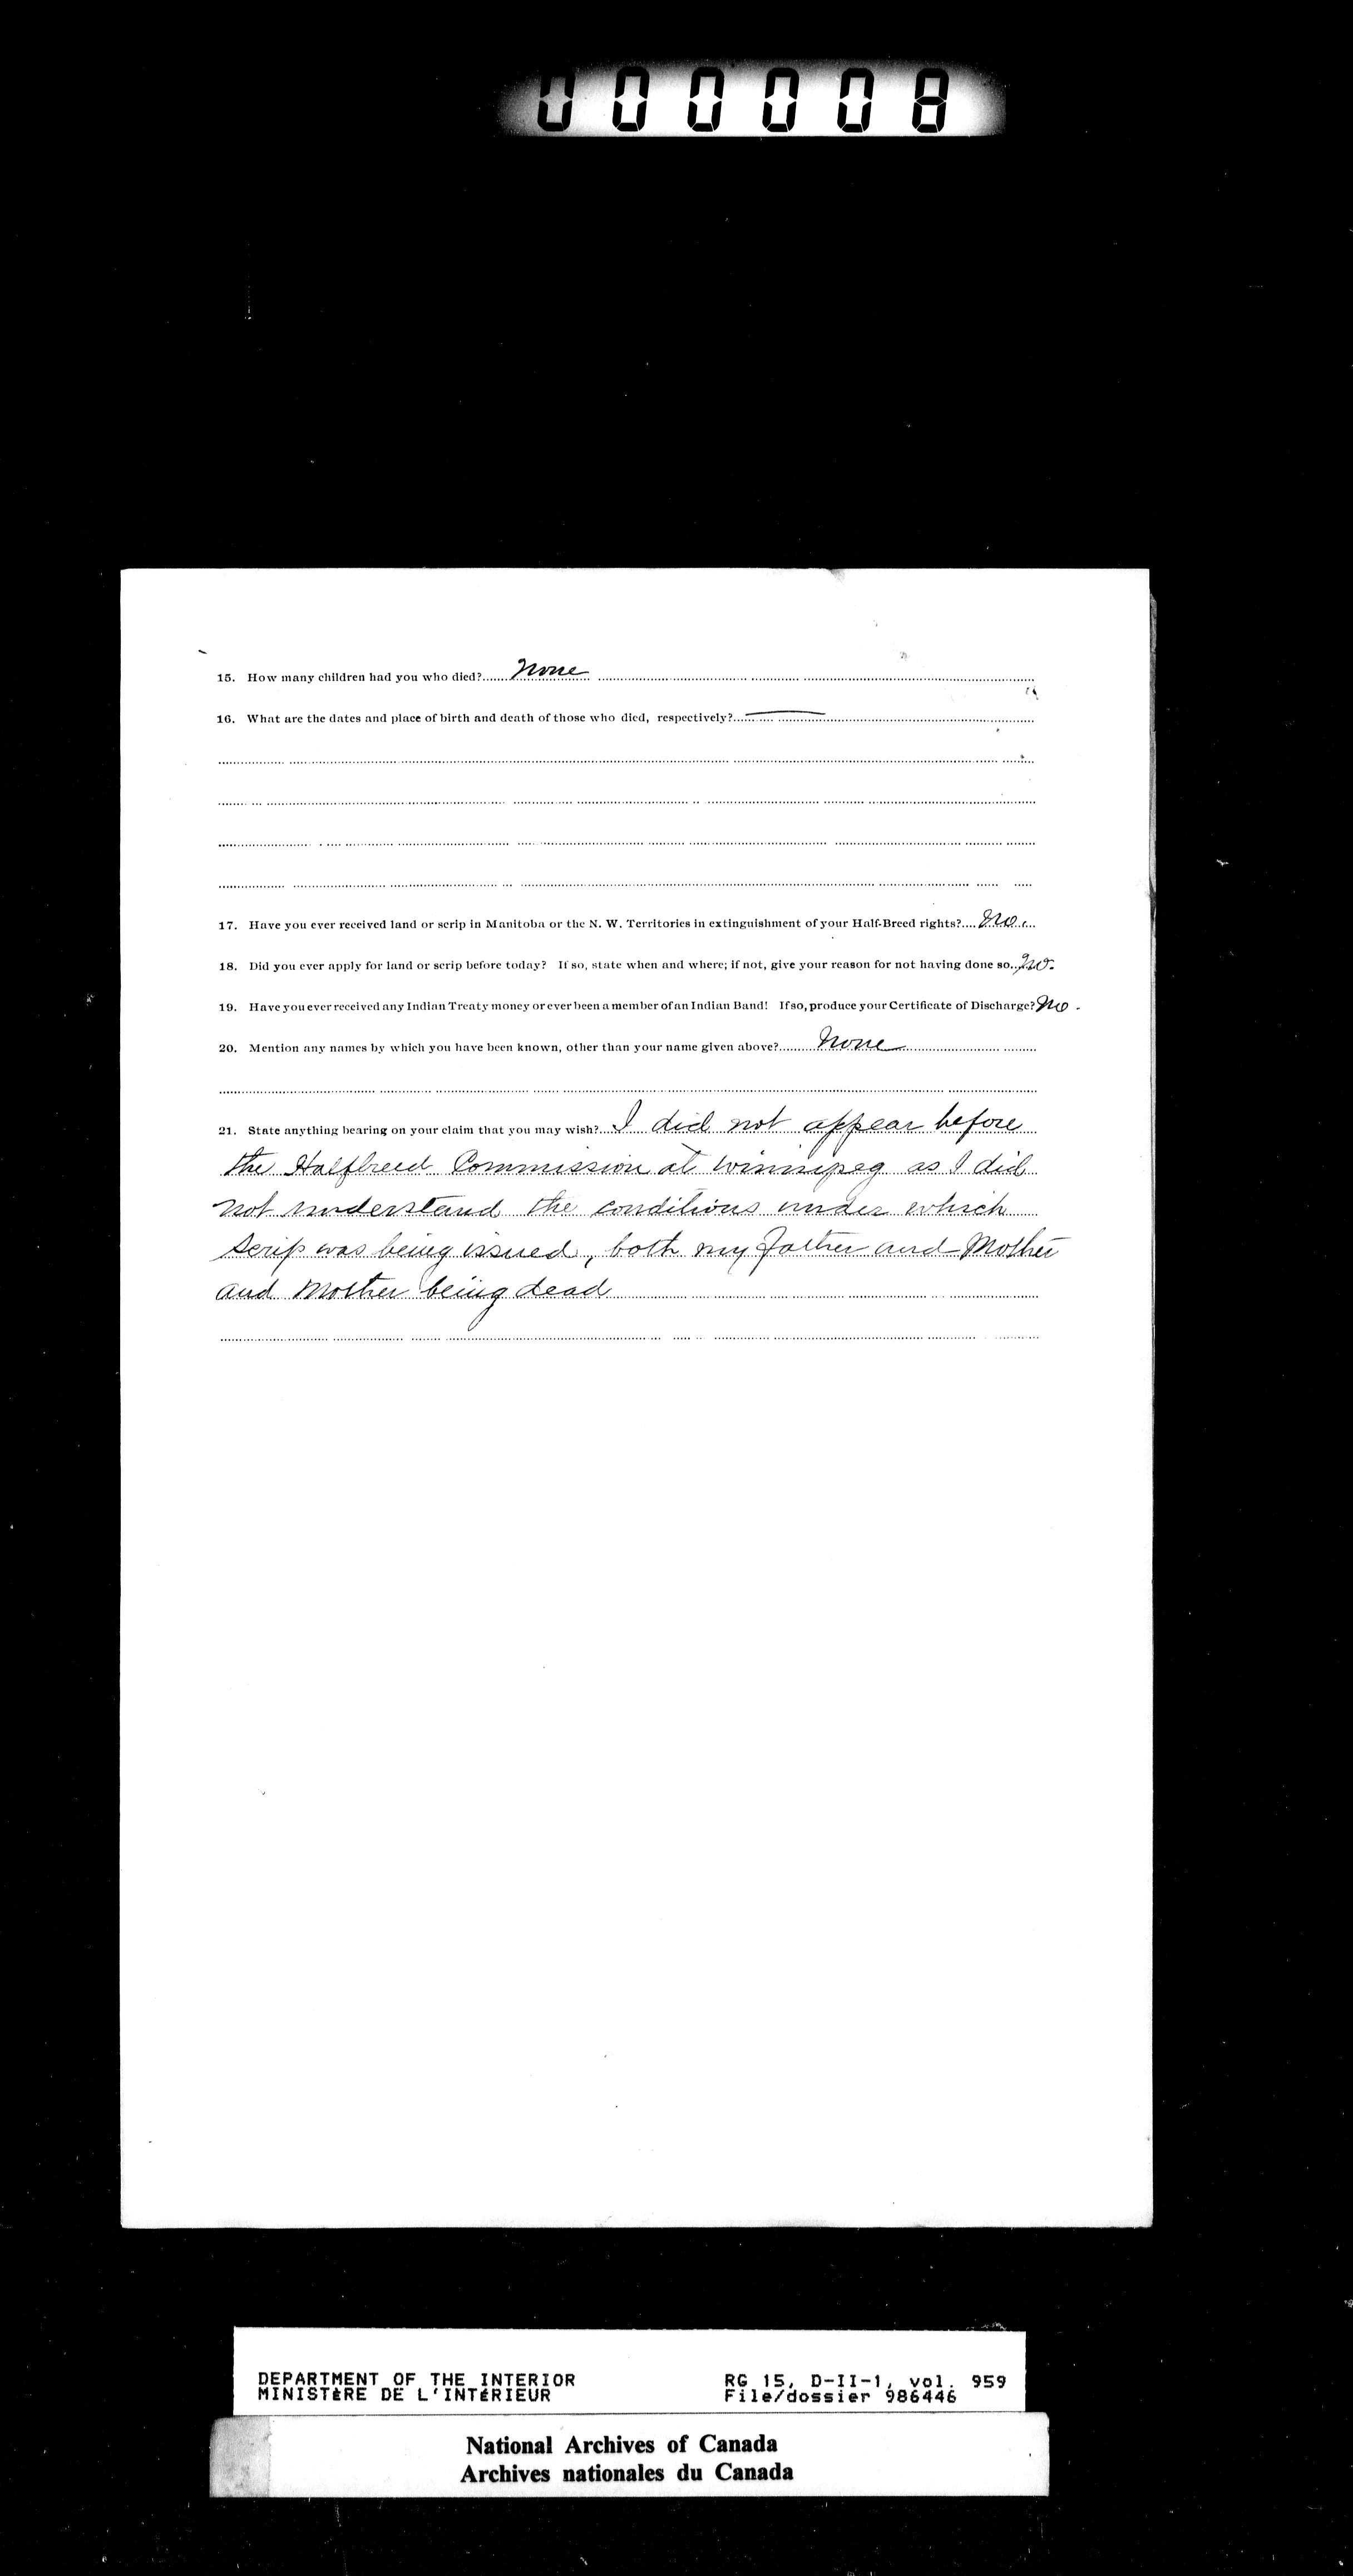 000008
15. How many children had you who died? None
16. What are the dates and place of birth and death of those who died, respectively? —
17. Have you ever received land or scrip in Manitoba or the N. W. Territories in extinguishment of your Half-Breed rights? No.
18. Did you ever apply for land or scrip before today? If so, state when and where; if not, give your reason for not having done so. No.
19. Have you ever received any Indian Treaty money or ever been a member of an Indian Band! If so, produce your Certificate of Discharge? No.
20. Mention any names by which you have been known, other than your name given above? None
21. State anything bearing on your claim that you may wish? I did not appear before
the Halfbreed Commission at Winnipeg as I did
not understand the conditions under which
scrip was being issued, both my father and Mother
and Mother being dead
DEPARTMENT OF THE INTERIOR RG 15, D-II-1, vol. 959
MINISTÈRE DE L'INTÉRIEUR File/dossier 986446
National Archives of Canada
Archives nationales du Canada